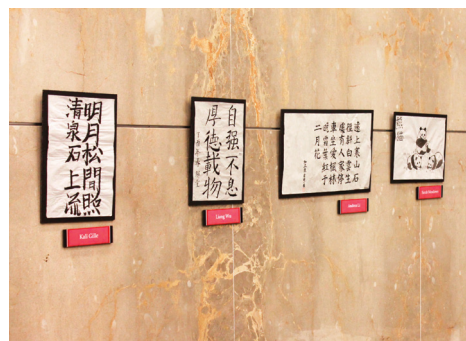 明月松間照
清泉石上流
Kali Gille
自强不息
厚德載物
Liang Wu
遠上寒山石
徑斜白雲生
處有人家停
車坐愛楓林
晚霜葉紅于
二月花
熊猫